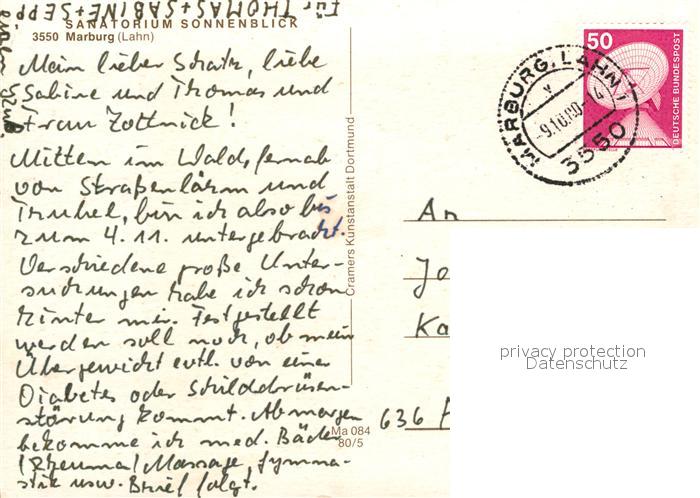 Für THOMAS+SABINE+SEPP
SANATORIUM SONNENBLICK
3550 Marburg (Lahn)
Mein lieber Schatz, liebe
Sabine und Thomas und
Frau Zottnick!
Mitten im Wald, fernab
von Straßenlärm und
Trubel, bin ich also bis
zum 4.11. untergebracht.
Verschiedene große Unter-
suchungen habe ich schon
hinter mir. Festgestellt
werden soll noch, ob mein
Übergewicht evtl. von einer
Diabetes oder Schilddrüsen-
störung kommt. Ab morgen
bekomme ich med. Bäder
(Rheuma) Massage, Gymna-
stik usw. Brief folgt.
Cramers Kunstanstalt Dortmund
Ma 084
80/5
50
DEUTSCHE BUNDESPOST
MARBURG, LAHN 1
v
-9.10.80-
3550
An
Jo
Ka
636
privacy protection
Datenschutz